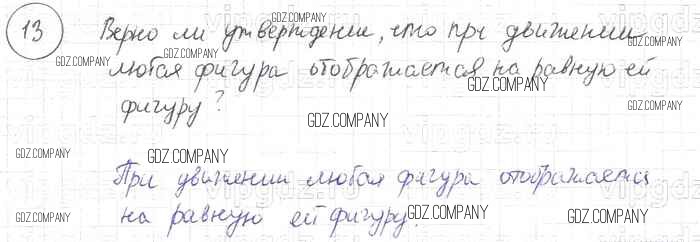 13 Верно ли утверждение, что при движении
любая фигура отображается на равную ей
фигуру?
При движении любая фигура отображается
на равную ей фигуру.
GDZ.COMPANY
GDZ.COMPANY
GDZ.COMPANY
GDZ.COMPANY
GDZ.COMPANY
GDZ.COMPANY
GDZ.COMPANY
GDZ.COMPANY
GDZ.COMPANY
GDZ.COMPANY
GDZ.COMPANY
GDZ.COMPANY